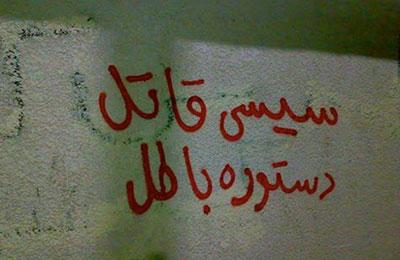 سيسى قاتل
دستوره باطل